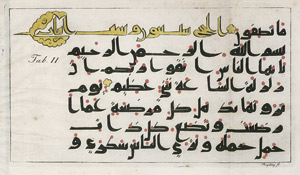 ما تصفون
بسم الله الرحمن الرحيم
Tab. II
يايها الناس اتقوا ربكم ان
زلزلة الساعة شى عظيم يوم
ترونها تذهل كل مرضعة عما
ارضعت وتضع كل ذات
حمل حملها وترى الناس سكرى و